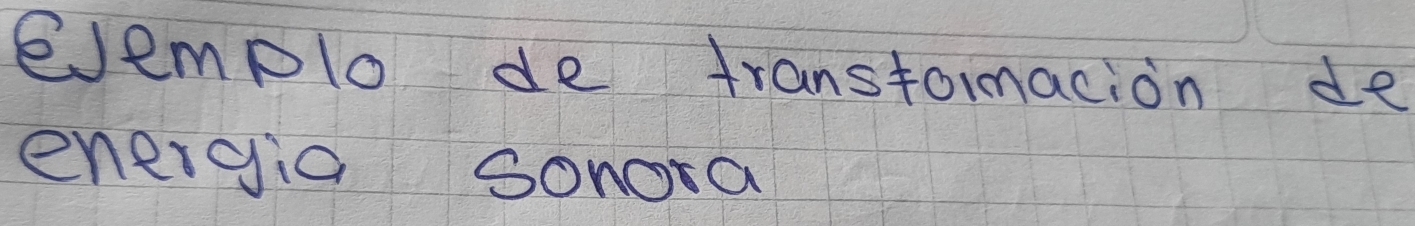 Ejemplo de transformación de
energia sonora